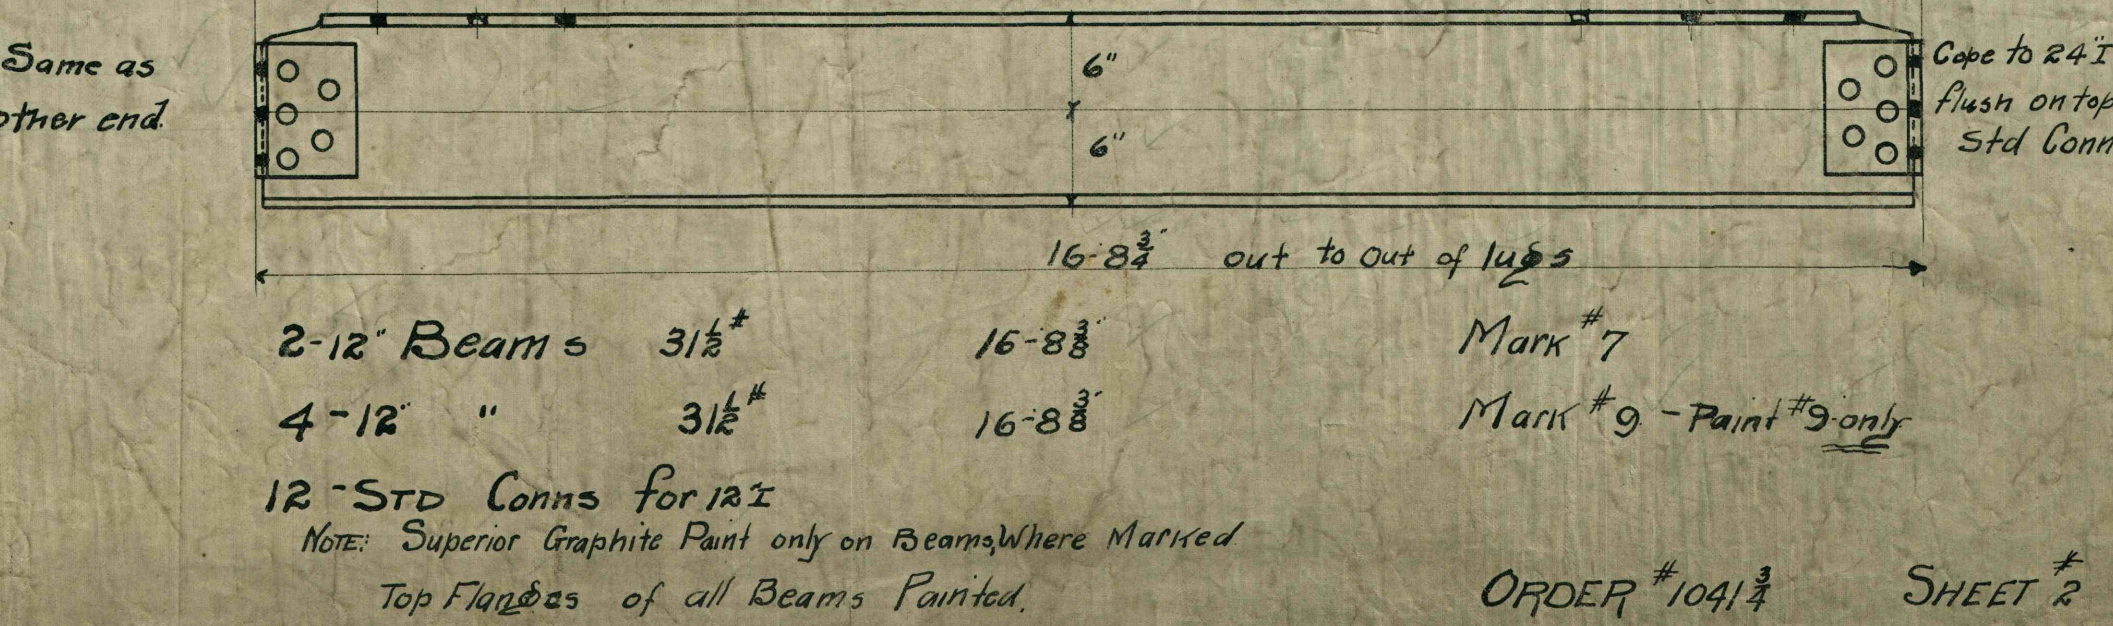 Same as
other end.
6"
6"
Cope to 24" I
flush on top
Std Conn
16'-8 3/4" out to out of lugs
2-12" Beams 31 1/2# 16'-8 3/8" Mark #7
4-12" " 31 1/2# 16'-8 3/8" Mark #9 - Paint #9 only
12-STD Conns for 12" I
NOTE: Superior Graphite Paint only on Beams, Where Marked
Top Flanges of all Beams Painted.
ORDER #1041 3/4 SHEET #2